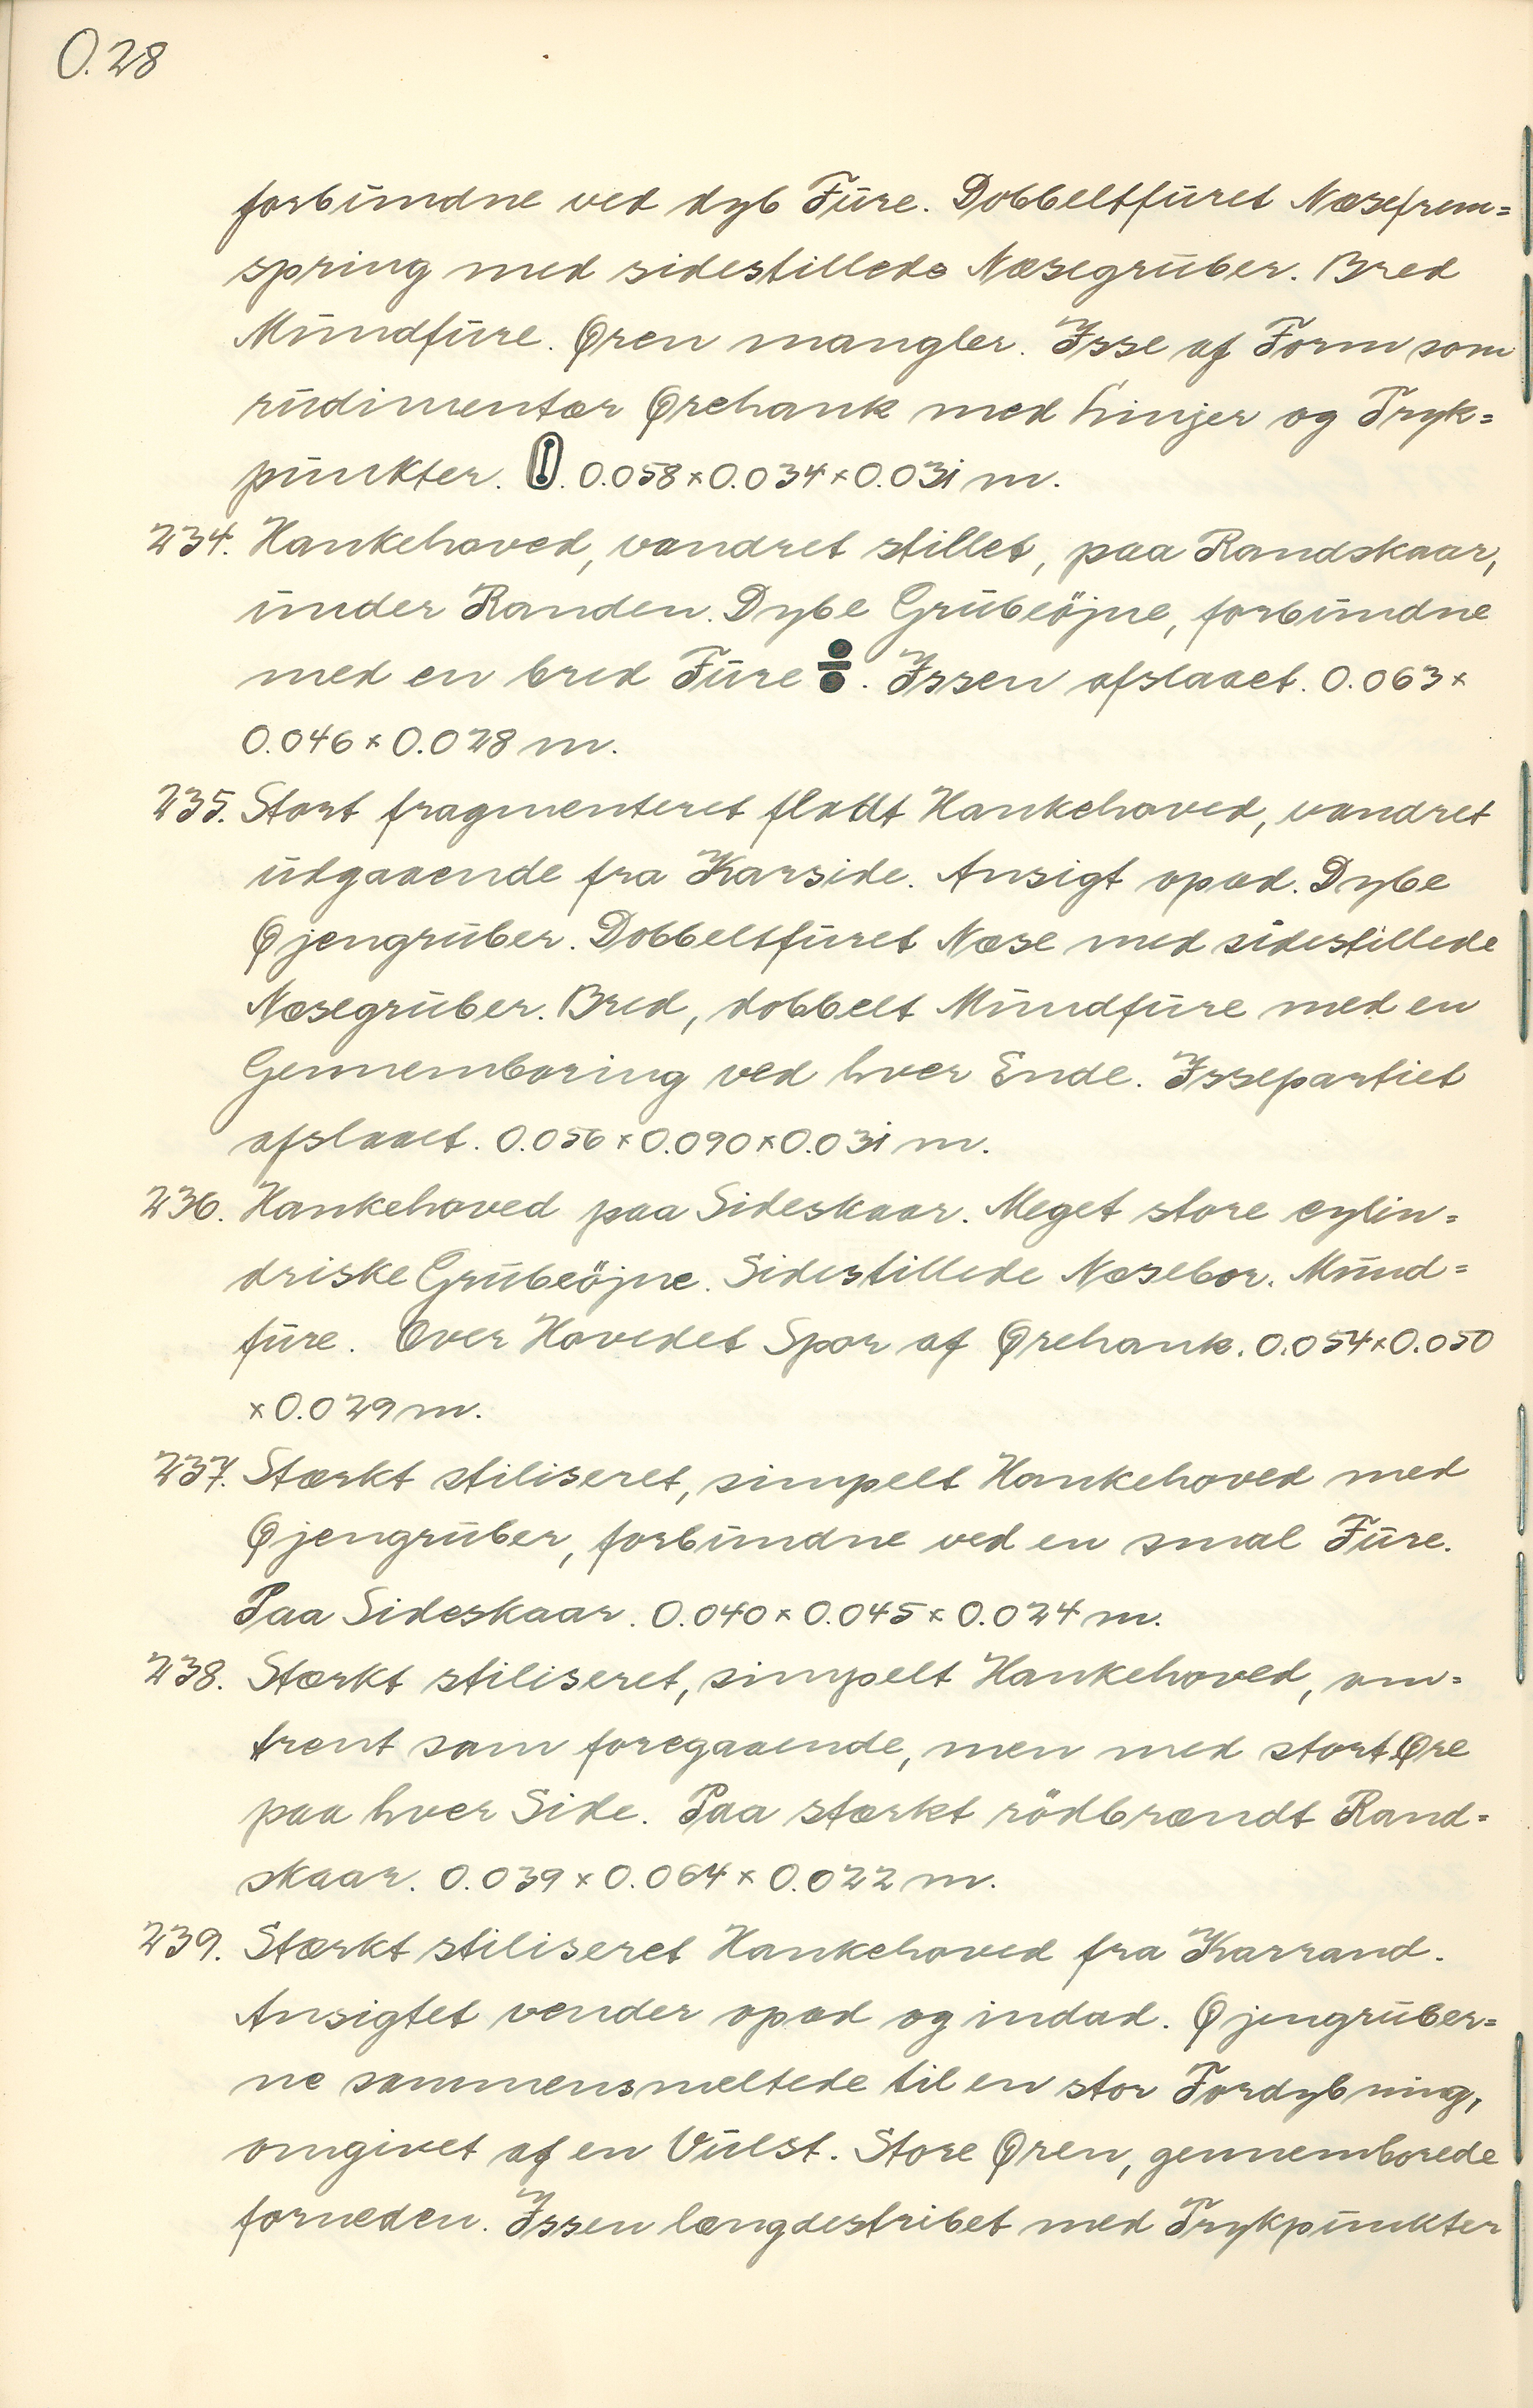 O.28
forbundne ved dyb Fure. Dobbeltfuret Næsefrem=
spring med sidestillede Næsegruber. Bred
Mundfure. Øren mangler. Isse af Form som
rudimentær Ørehank med Linjer og Tryk=
punkter. 0.058×0.034×0.031 m.
234. Hankehoved, vandret stillet, paa Randskaar,
under Randen. Dybe Grubeöjne, forbundne
med en bred Fure. Issen afslaaet. 0.063×
0.046×0.028 m.
235. Stort fragmenteret fladt Hankehoved, vandret
udgaaende fra Karside. Ansigt opad. Dybe
Øjengruber. Dobbeltfuret Næse med sidestillede
Næsegruber. Bred, dobbelt Mundfure med en
Gennemboring ved hver Ende. Issepartiet
afslaaet. 0.056×0.090×0.031 m.
236. Hankehoved paa Sideskaar. Meget store cylin=
driske Grubeöjne. Sidestillede Næsebor. Mund=
fure. Over Hovedet Spor af Ørehank. 0.054×0.050
×0.029 m.
237. Stærkt stiliseret, simpelt Hankehoved med
Øjengruber, forbundne ved en smal Fure.
Paa Sideskaar. 0.040×0.045×0.024 m.
238. Stærkt stiliseret, simpelt Hankehoved, om=
trent som foregaaende, men med stort Øre
paa hver Side. Paa stærkt rödbrændt Rand=
skaar. 0.039×0.064×0.022 m.
239. Stærkt stiliseret Hankehoved fra Karrand.
Ansigtet vender opad og indad. Øjengruber=
ne sammensmeltede til en stor Fordybning,
omgivet af en Vulst. Store Øren, gennemborede
forneden. Issen længdestribet med Trykpunkter